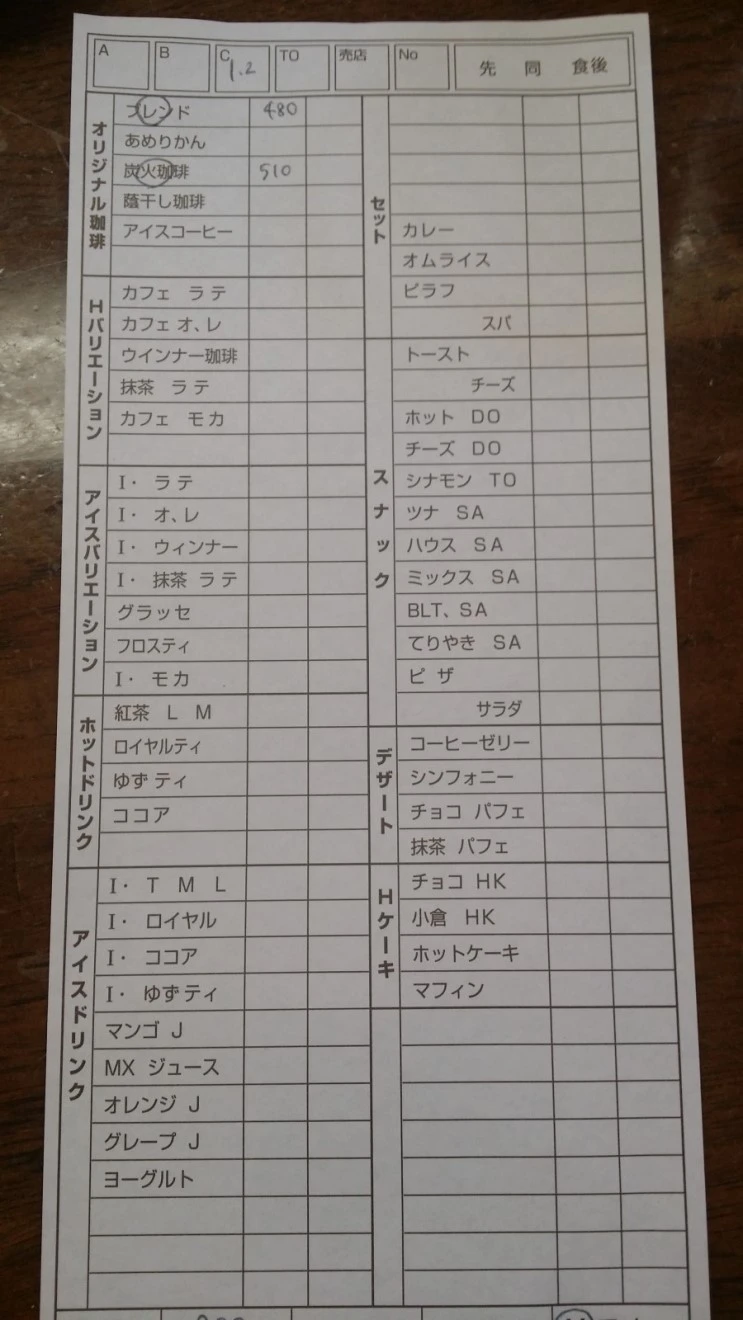 A B C 1.2 TO 売店 No 先 同 食後
オリジナル珈琲
ブレンド 480
あめりかん
炭火珈琲 510
蔭干し珈琲
アイスコーヒー
Hバリエーション
カフェ ラテ
カフェオ、レ
ウインナー珈琲
抹茶 ラテ
カフェ モカ
アイスバリエーション
I・ ラテ
I・ オ、レ
I・ ウィンナー
I・ 抹茶 ラテ
グラッセ
フロスティ
I・ モカ
ホットドリンク
紅茶 L M
ロイヤルティ
ゆずティ
ココア
アイスドリンク
I・ T M L
I・ ロイヤル
I・ ココア
I・ ゆずティ
マンゴ J
MX ジュース
オレンジ J
グレープ J
ヨーグルト
セット
カレー
オムライス
ピラフ
スパ
スナック
トースト
チーズ
ホット DO
チーズ DO
シナモン TO
ツナ SA
ハウス SA
ミックス SA
BLT、SA
てりやき SA
ピザ
サラダ
デザート
コーヒーゼリー
シンフォニー
チョコ パフェ
抹茶 パフェ
Hケーキ
チョコ HK
小倉 HK
ホットケーキ
マフィン